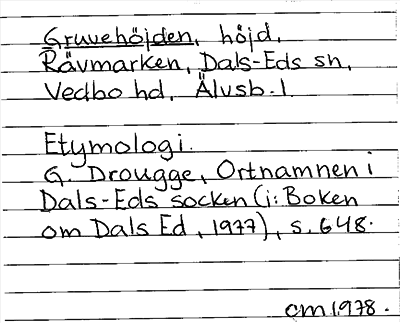 Gruvehöjden, höjd,
Rävmarken, Dals-Eds sn,
Vedbo hd, Älvsb. l
Etymologi.
G. Drougge, Ortnamnen i
Dals-Eds socken (i: Boken
om Dals Ed, 1977), s. 648.
cm 1978.